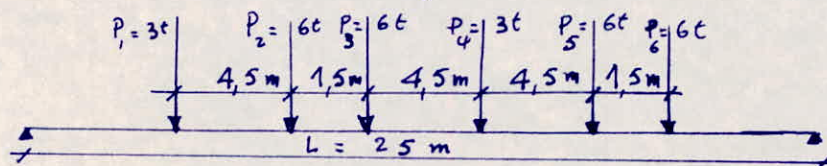 P₁ = 3t P₂ = 6t P₃ = 6t P₄ = 3t P₅ = 6t P₆ = 6t
4,5m 1,5m 4,5m 4,5m 1,5m
L = 25 m